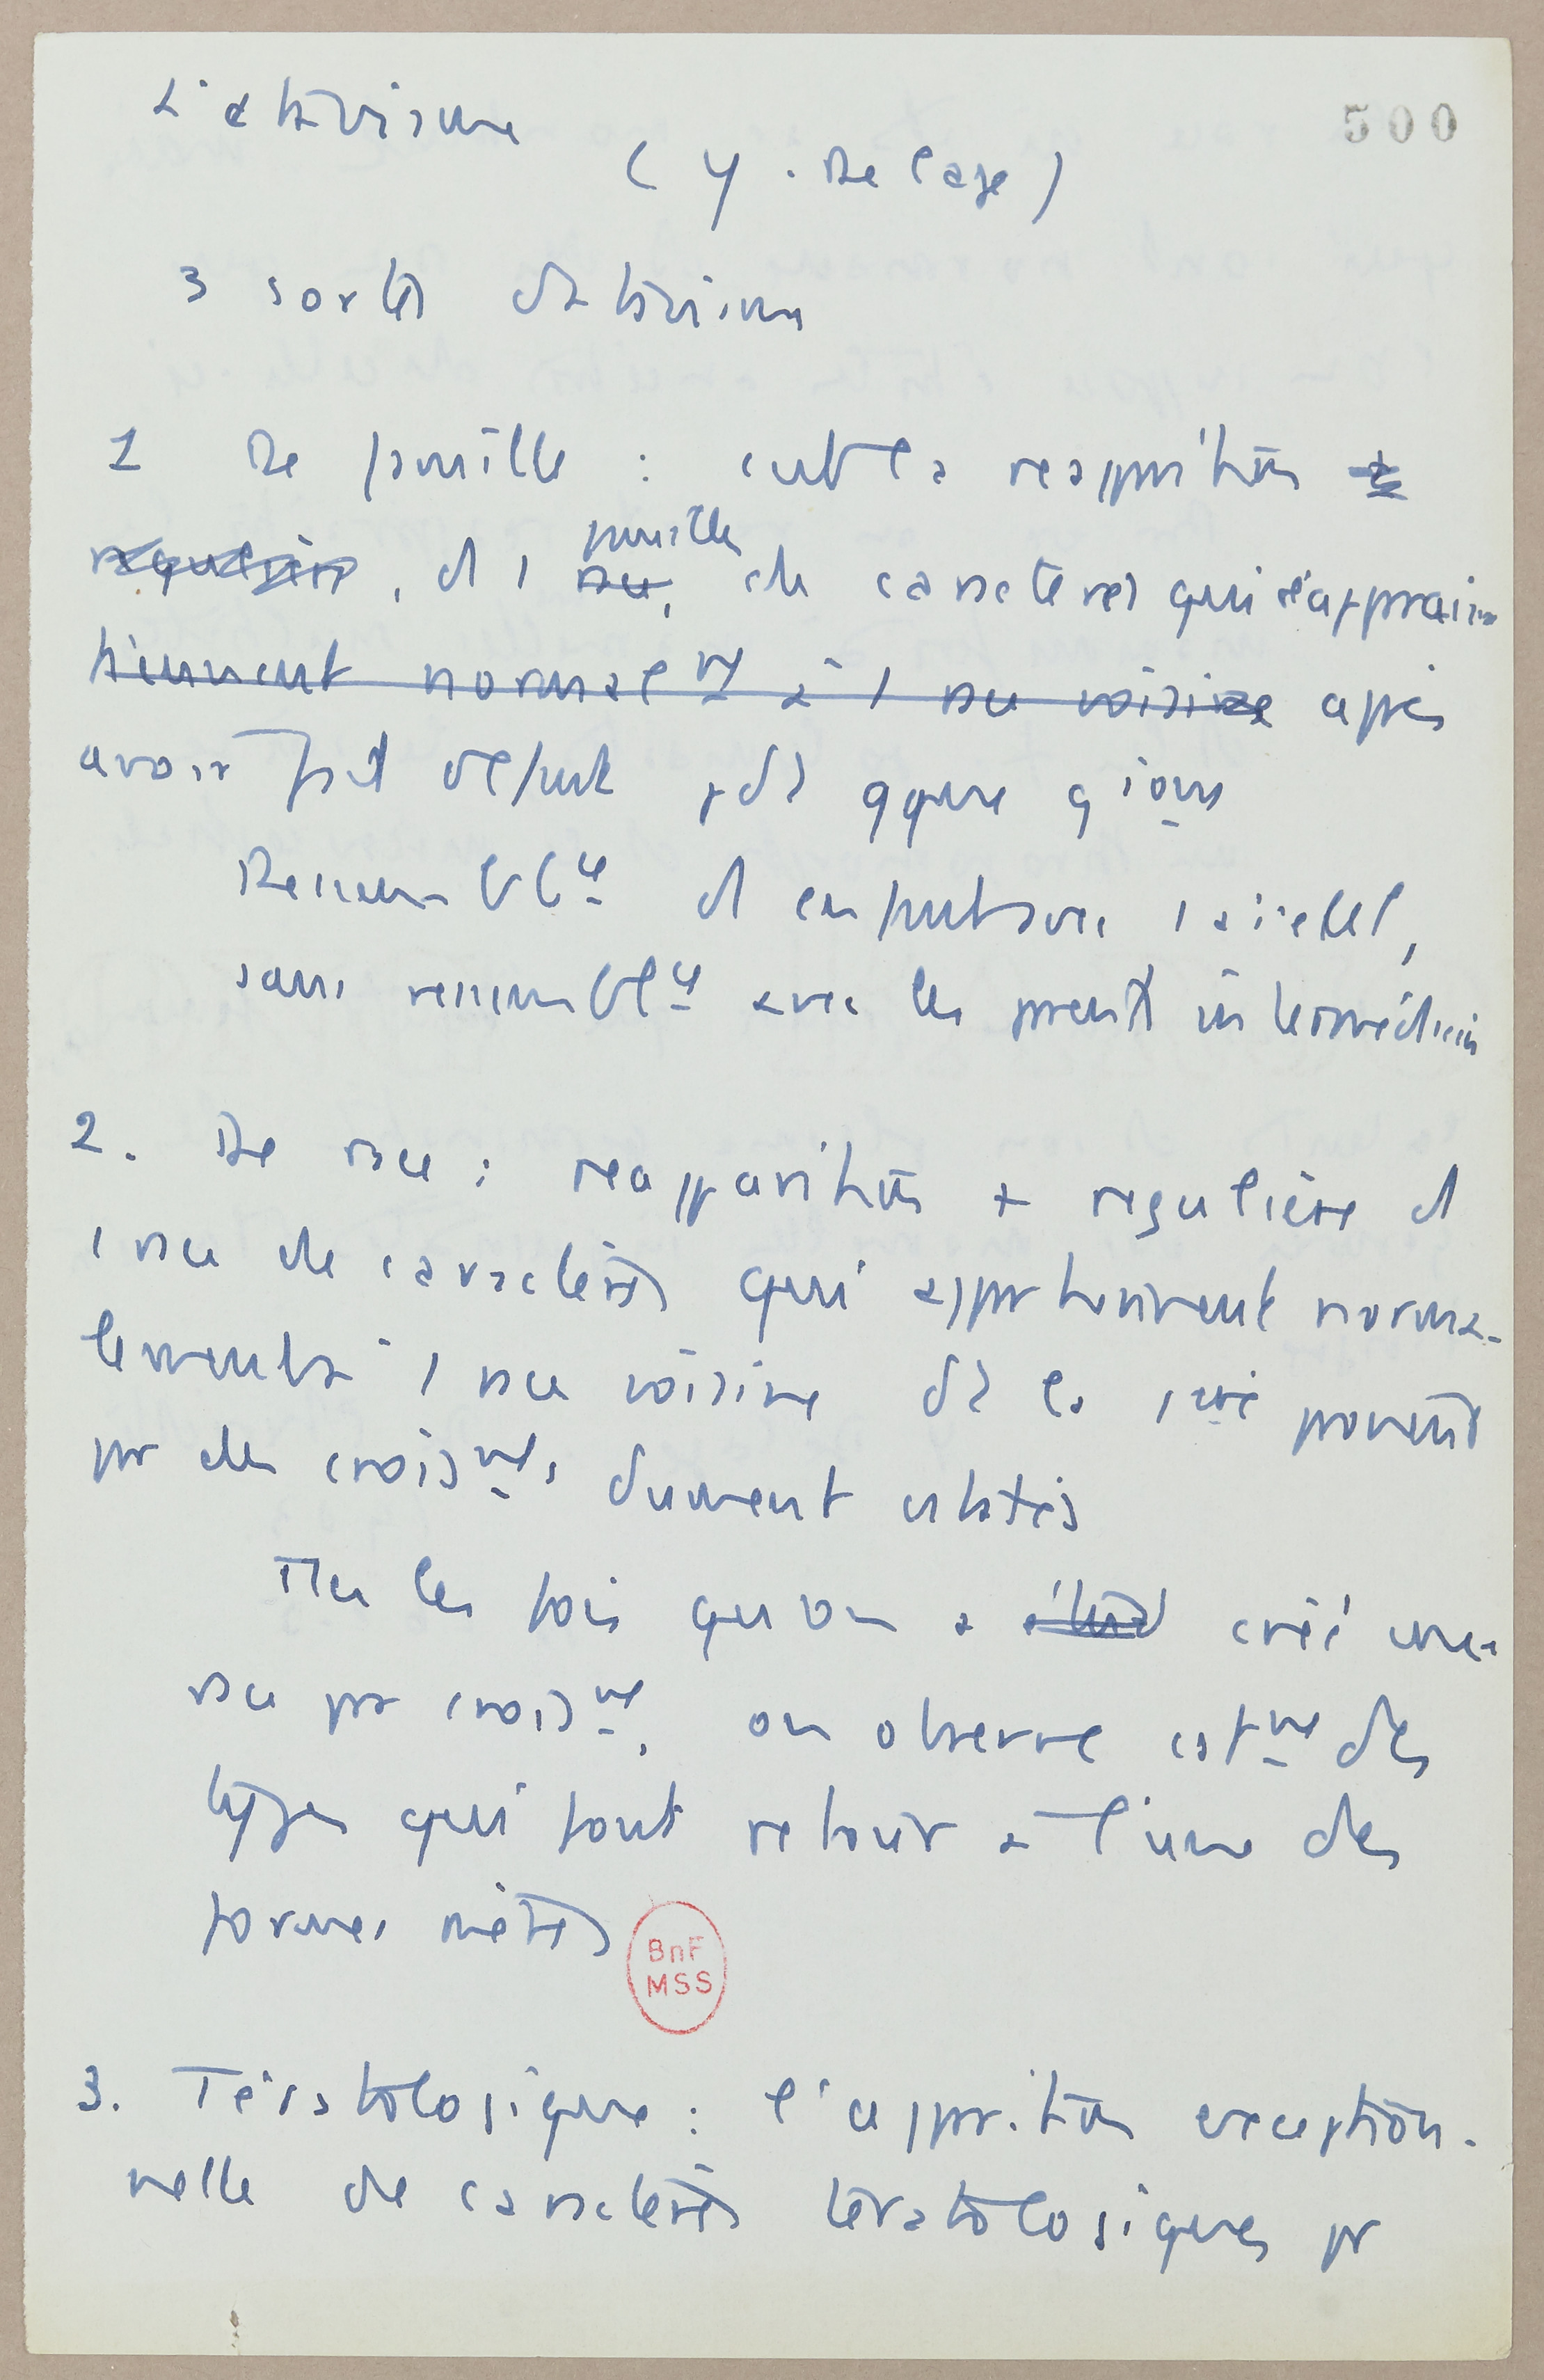 L'atavisme
500
(Y. Delage)
3 sortes d'atavisme
1 De famille : c'est la réapparition
régulière, d 1 race, famille de caractères qui réapparaiss
tiennent normalemt à 1 race voisine après
avoir fait défaut pds qque gions
Ressemblce d enfant avec 1 aïeul,
sans ressemblce avec les parents intermédiaires
2. De race : réapparition + régulière d
1 race de caractères qui appartiennent norma-
lement à 1 race voisine ds la 1ère provent
par des croismts dument cstatés
Ttes les fois qu'on a créé une
race par croismt, on observe cstmt des
types qui font retour à l'une des
formes mères
BnF
MSS
3. Tératologique : l'apparition exception-
nelle de caractères tératologiques pr